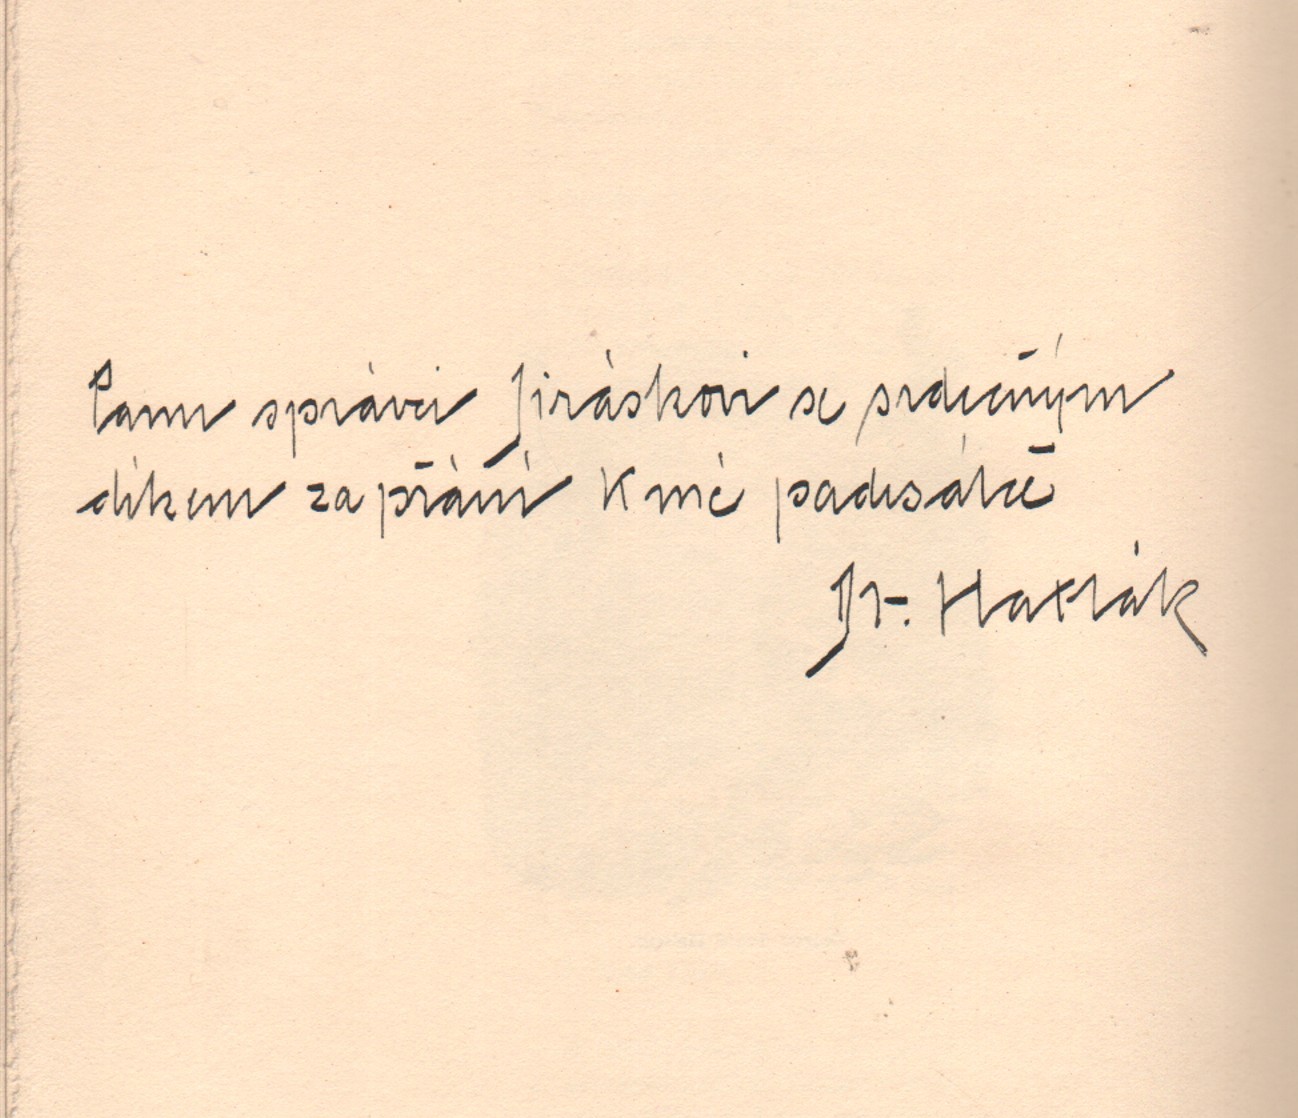 Panu správci Jiráskovi se srdečným
díkem za přání k mé padesátce
Hatlák